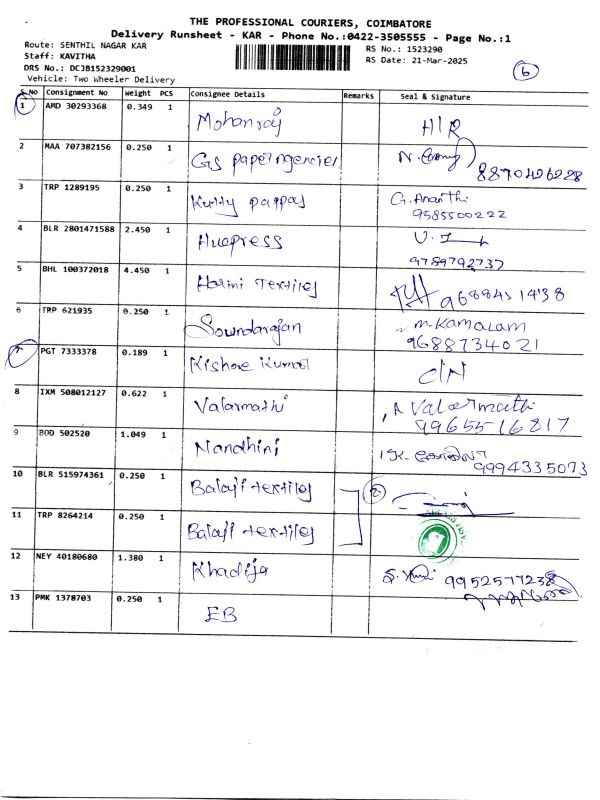 THE PROFESSIONAL COURIERS, COIMBATORE
Delivery Runsheet - KAR - Phone No.:0422-3505555 - Page No.:1
Route: SENTHIL NAGAR KAR
RS No.: 1523290
Staff: KAVITHA
RS Date: 21-Mar-2025
DRS No.: DCJB152329001
Vehicle: Two Wheeler Delivery
6
S.No Consignment No Weight PCS Consignee Details Remarks Seal & Signature
1 AMD 30293368 0.349 1 Mohanraj H/R
2 MAA 707382156 0.250 1 GS paper agencies
3 TRP 1289195 0.250 1 Kutty pappas G. Ananthi
9585500222
4 BLR 2801471588 2.450 1 Huepress
9789792737
5 BHL 100372018 4.450 1 Harini Textiles
6 TRP 621935 0.250 1 Soundarajan M. Kamalam
9688734021
7 PGT 7333378 0.189 1 Kishore Kumar
8 IXM 508012127 0.622 1 Valarmathi Valarmathi
9965516817
9 BOD 502520 1.049 1 Nandhini
9994335073
10 BLR 515974361 0.250 1 Balaji textiles 2
11 TRP 8264214 0.250 1 Balaji textiles
12 NEY 40180680 1.380 1 Khadija 9952577238
13 PMK 1378703 0.250 1 EB